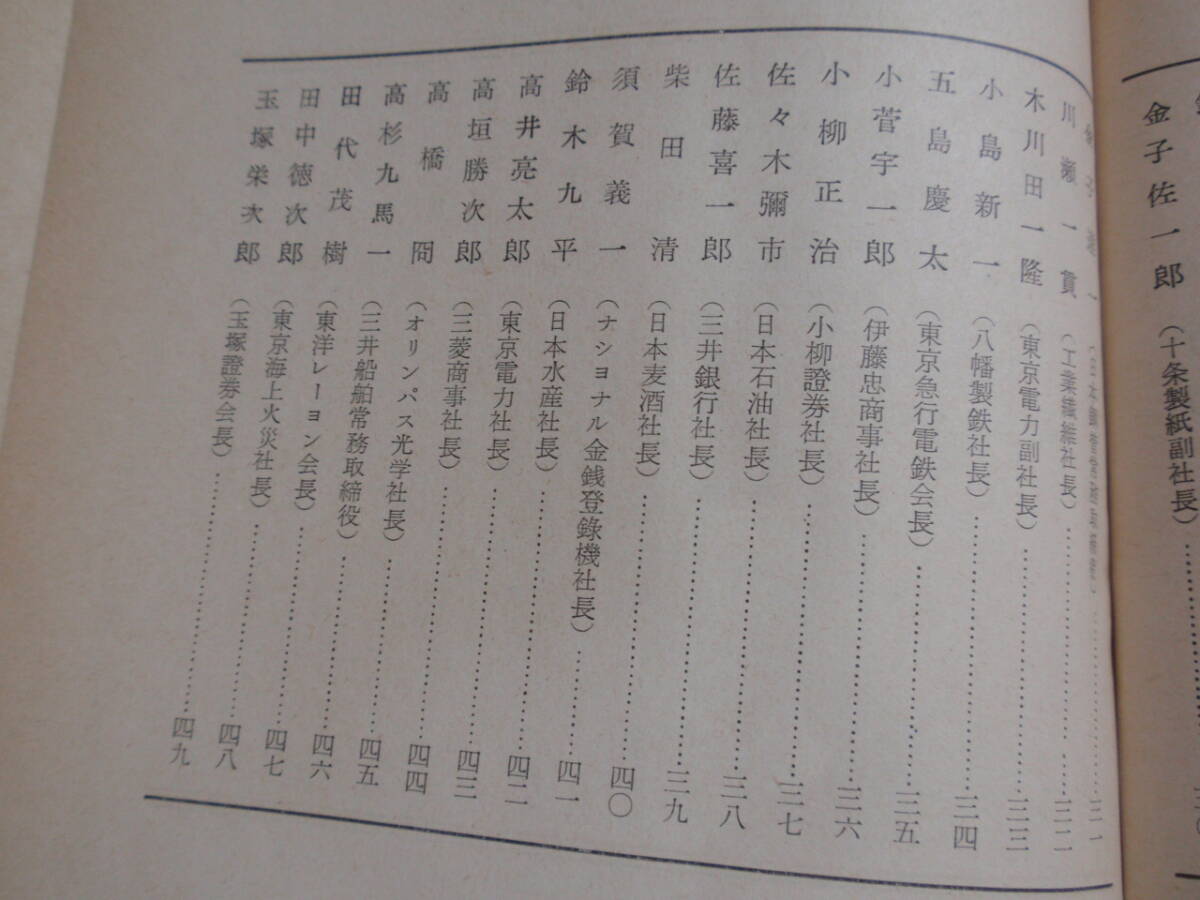 金子佐一郎（十条製紙副社長）
三一
川瀬一貫（工業繊維社長）…………三二
木川田一隆（東京電力副社長）…………三三
小島新一（八幡製鉄社長）…………三四
五島慶太（東京急行電鉄会長）…………三五
小菅宇一郎（伊藤忠商事社長）…………三六
小柳正治（小柳證券社長）…………三七
佐々木彌市（日本石油社長）…………三八
佐藤喜一郎（三井銀行社長）…………三九
柴田清（日本麦酒社長）…………四〇
須賀義一（ナシヨナル金銭登錄機社長）…………四一
鈴木九平（日本水産社長）…………四二
高井亮太郎（東京電力社長）…………四三
高垣勝次郎（三菱商事社長）…………四四
高橋冏（オリンパス光学社長）…………四五
高杉九馬一（三井船舶常務取締役）…………四六
田代茂樹（東洋レーヨン会長）…………四七
田中徳次郎（東京海上火災社長）…………四八
玉塚栄次郎（玉塚證券会長）…………四九